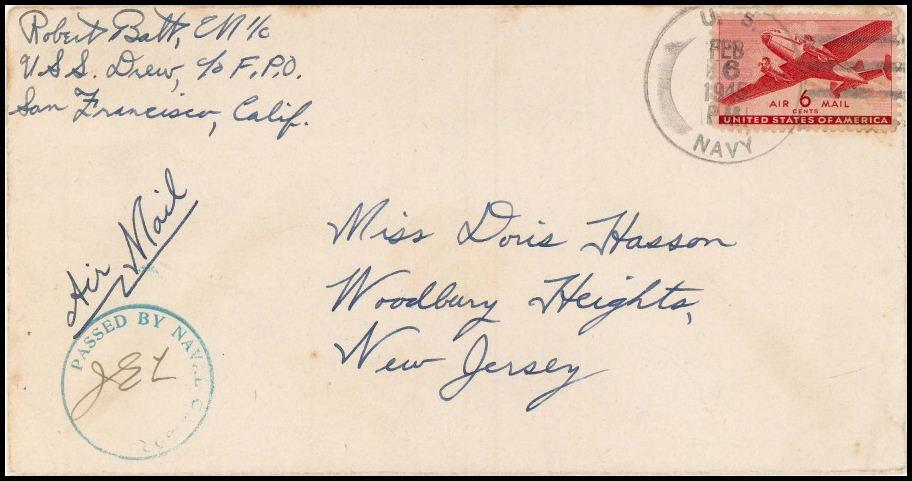 Robert Batt, EM 1/c
U.S.S. Drew, c/o F.P.O.
San Francisco, Calif.
U. S.
FEB
6
P.M.
NAVY
AIR 6 MAIL
CENTS
UNITED STATES OF AMERICA
Air Mail
Miss Doris Hasson
Woodbury Heights,
New Jersey
PASSED BY NAVAL
JEL